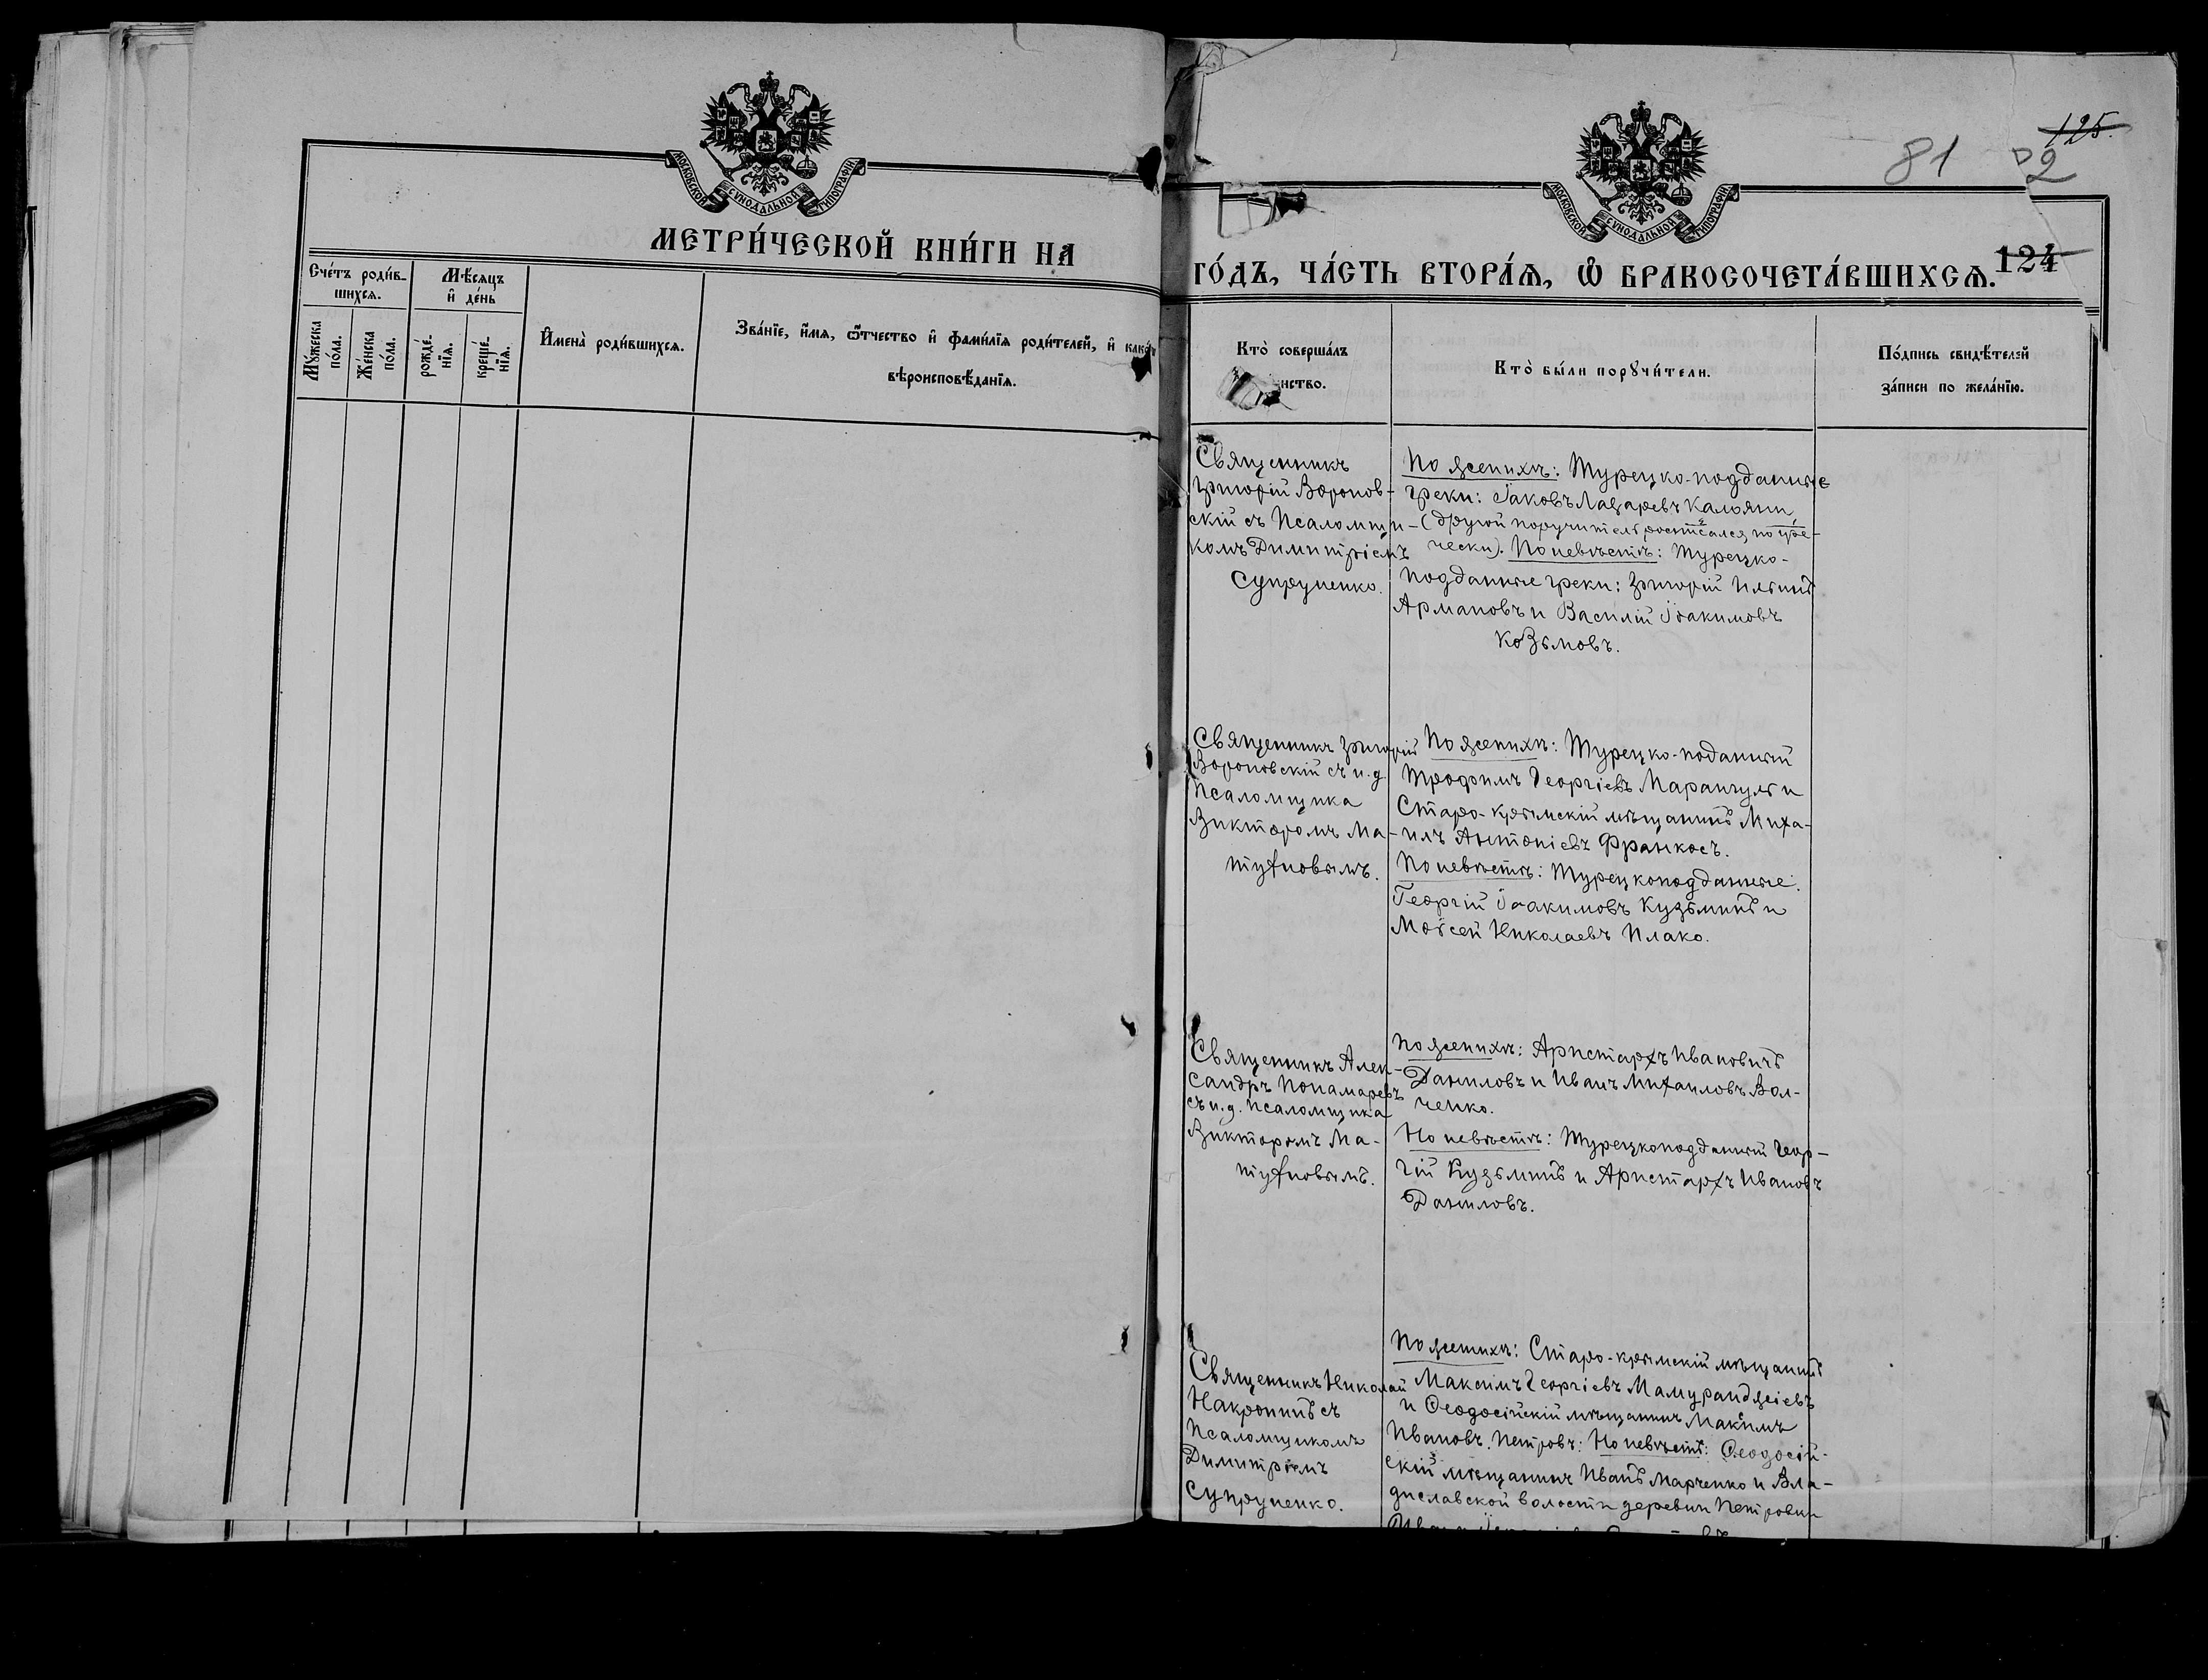 МОСКОВСКОЙ СѴНОДАЛЬНОЙ ТИПОГРАФІИ
МЕТРИ́ЧЕСКОЙ КНИ́ГИ НА
Сче́тъ роди́в-
шихсѧ.
Мѣ́сѧцъ
и҆ де́нь
Мꙋ́жеска
по́ла.
Же́нска
по́ла.
рожде́-
нїѧ.
креще́-
нїѧ.
И҆мена̀ роди́вшихсѧ.
Зва́нїе, и҆́мѧ, ѻ҆́тчество и҆ фами́лїѧ роди́телей, и҆ како́гѡ
вѣроисповѣ́данїѧ.
125.
81
МОСКОВСКОЙ СѴНОДАЛЬНОЙ ТИПОГРАФІИ
124
ГО́ДЪ, ЧА́СТЬ ВТОРА́Ѧ, Ѡ҆ БРАКОСОЧЕТА́ВШИХСѦ.
Кто̀ соверша́лъ
инство.
Кто̀ бы́ли порꙋчи́тели.
По́дпись свидѣ́телей
за́писи по жела́нїю.
Священникъ
Григорій Воронов-
скій съ Псаломщи-
комъ Димитріемъ
Супруненко.
По женихѣ: Турецко-подданные
греки: Іаковъ Лазаревъ Калояни,
(другой поручитель росписался по гре-
чески). По невѣстѣ: Турецко-
подданные греки: Григорій Ильинъ
Армановъ и Василій Іоакимовъ
Козьмовъ.
Священникъ Григорій
Вороновскій съ и.д.
Псаломщика
Викторомъ Ма-
тухновымъ.
По женихѣ: Турецко-поданный
Трофимъ Георгіевъ Марангули и
Старо-крымскій мѣщанинъ Миха-
илъ Антоніевъ Франкосъ.
По невѣстѣ: Турецкоподданные:
Георгій Іоакимовъ Кузьминъ и
Моѵсей Николаевъ Плако.
Священникъ Алек-
сандръ Понамаревъ
съ и.д. псаломщика
Викторомъ Ма-
тухновымъ.
По женихѣ: Аристархъ Ивановичъ
Даниловъ и Иванъ Михаиловъ Вол-
ченко.
По невѣстѣ: Турецкоподданный Геор-
гій Кузьминъ и Аристархъ Ивановъ
Даниловъ.
Священникъ Николай
Накропинъ съ
Псаломщикомъ
Димитріемъ
Супруненко.
По женихѣ: Старо-крымскій мѣщанинъ
Максимъ Георгіевъ Мамуранджіевъ
и Ѳеодосійскій мѣщанинъ Макимъ
Ивановъ Петровъ: По невѣстѣ: Ѳеодосій-
скій мѣщанинъ Иванъ Марченко и Вла-
диславской волости деревни Петровки